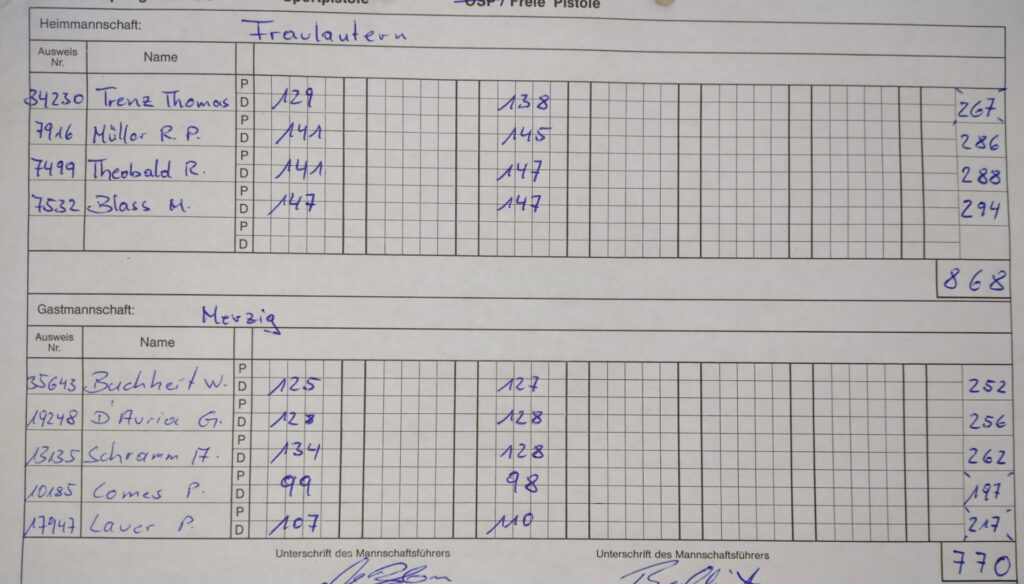 Sportpistole USP / Freie Pistole
Heimmannschaft: Fraulautern
Ausweis Nr. Name
34230 Trenz Thomas P D 129 138 267
7916 Müller R. P. P D 141 145 286
7499 Theobald R. P D 141 147 288
7532 Blass M. P D 147 147 294
P D
868
Gastmannschaft: Merzig
Ausweis Nr. Name
35643 Buchheit W. P D 125 127 252
19248 D'Auria G. P D 128 128 256
13135 Schramm A. P D 134 128 262
10185 Comes P. P D 99 98 197
17947 Lauer P. P D 107 110 217
Unterschrift des Mannschaftsführers Unterschrift des Mannschaftsführers
770